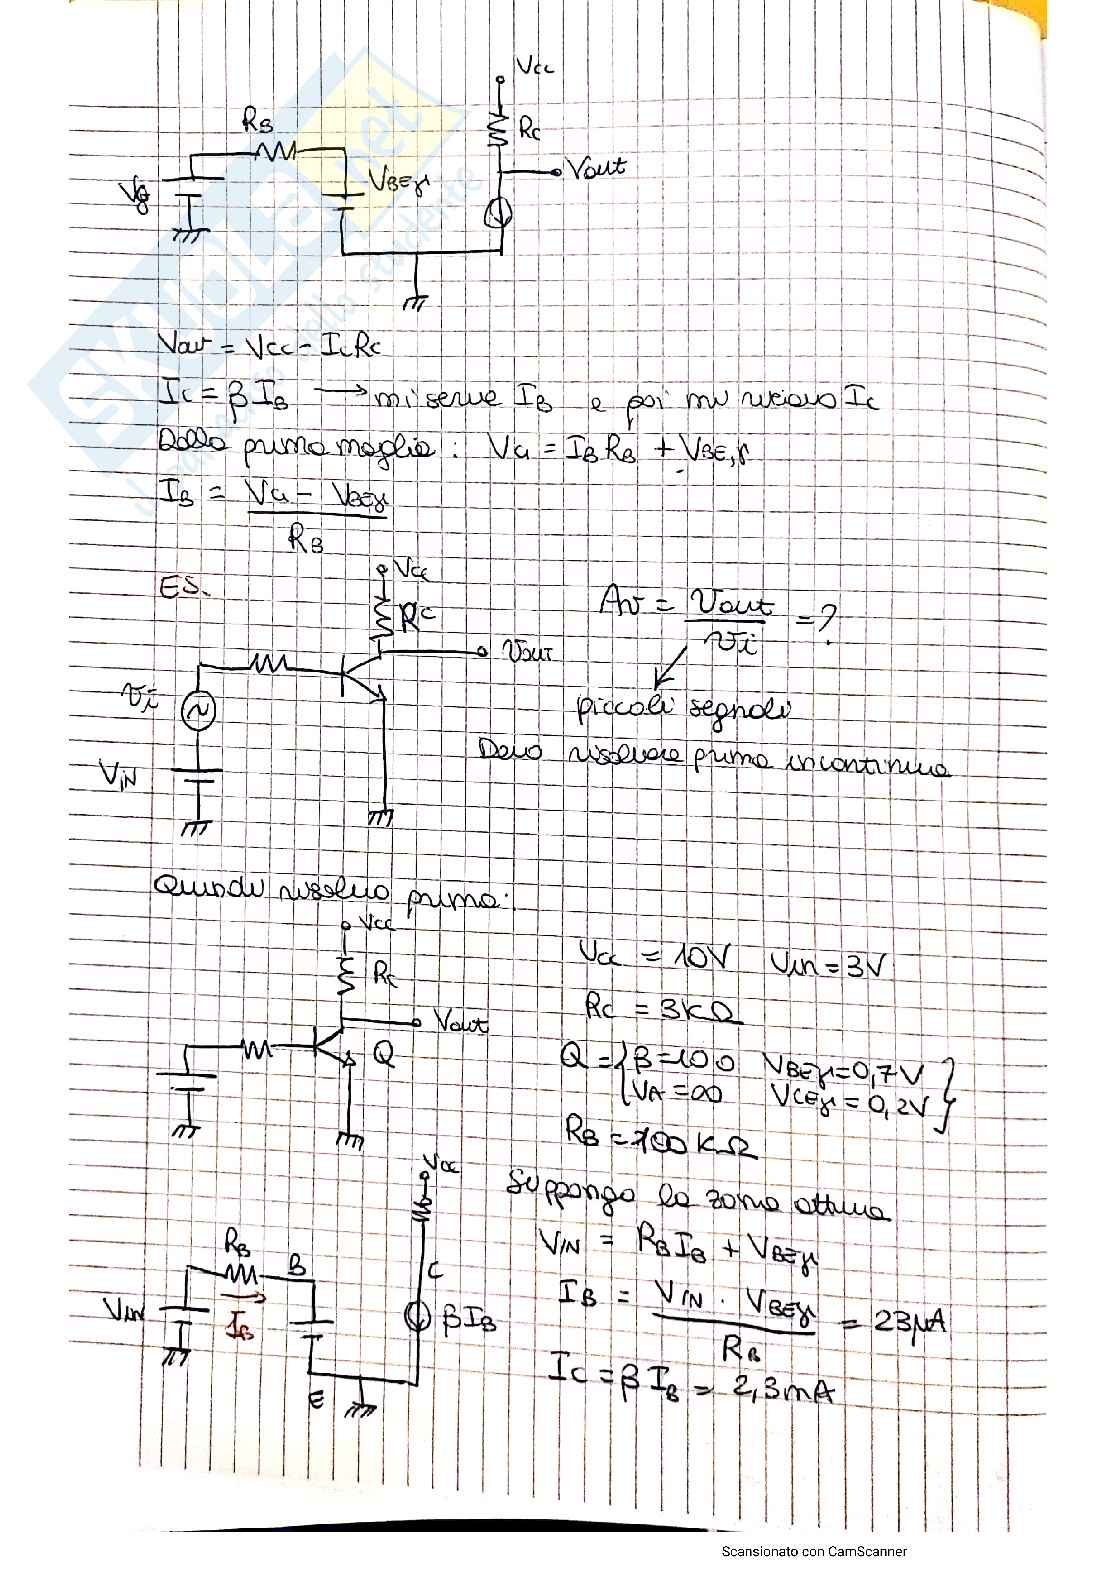 Vcc
RB
Rc
Vout
Vg
VBEγ
Vout = Vcc - IcRc
Ic = β IB → mi serve IB e poi mi ricavo Ic
Dalla prima maglia: VG = IB RB + VBE,γ
IB = VG - VBEγ
RB
ES.
Vcc
Rc
Vout
vi
VIN
Av = Vout = ?
vi
piccoli segnali
Devo risolvere prima in continua
Quindi risolvo prima:
Vcc
Rc
Vout
Q
Vcc = 10V Vin = 3V
Rc = 3KΩ
Q = { β = 100 VBEγ = 0,7V
VA = ∞ VCEγ = 0,2V }
RB = 100 KΩ
Suppongo la zona attiva
Vcc
RB
B
C
Vin
IB
βIB
E
VIN = RB IB + VBEγ
IB = VIN - VBEγ = 23μA
RB
Ic = β IB = 2,3mA
Scansionato con CamScanner